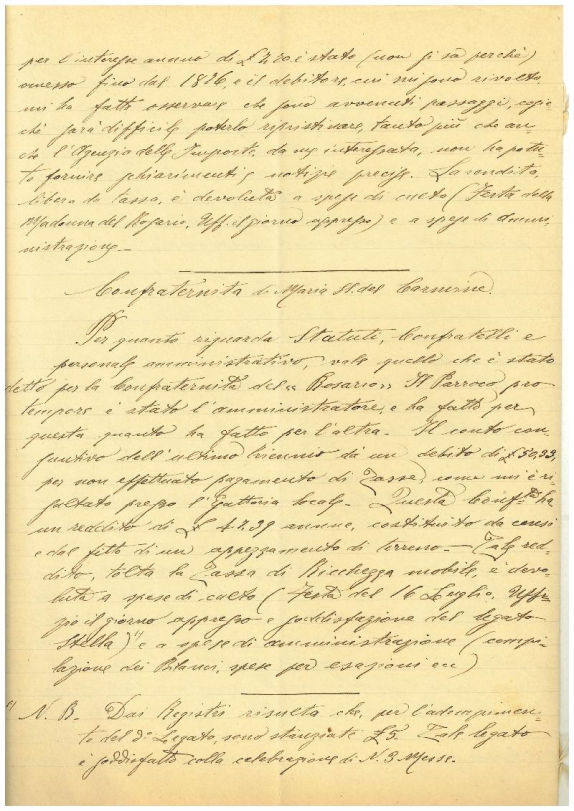 per l'interesse annuo di £ 2,20 è stato (non si sà perchè)
omesso fino dal 1896, e il debitore, cui mi sono rivolto,
mi ha fatto osservare che sono avvenuti passaggi, cosic-
chè sarà difficile poterlo ripristinare, tanto più che an-
che l'Agenzia delle Imposte, da me interessata, non ha potu-
to fornire schiarimenti e notizie precise. La rendita,
libera da tassa, è devoluta a spese di culto (Festa della
Madonna del Rosario, Uff. il giorno appresso) e a spese di ammi-
nistrazione. -
Confraternita di Maria SS. del Carmine.
Per quanto riguarda Statuti, Confratelli e
personale amministrativo, vale quello che è stato
detto per la Confraternita del "Rosario". Il Parroco pro
tempore è stato l'amministratore, e ha fatto per
questa quanto ha fatto per l'altra. - Il conto con-
suntivo dell'ultimo biennio dà un debito di £ 50,93,
per non effettuato pagamento di Tasse, come mi è ri
sultato presso l'Esattoria locale. - Questa Conf.ta ha
un reddito di £ 47.39 annue, costituito da censi
e dal fitto di un appezzamento di terreno. - Tale red-
dito, tolta la Tassa di Ricchezza mobile, è devo-
luto a spese di culto (festa del 16 Luglio, Uffi-
zio il giorno appresso e soddisfazione del legato
Stella)(1) e a spese di amministrazione (compi-
lazione dei Bilanci, spese per esazioni ecc)
(1) N. B. Dai Registri risulta che, per l'adempimen-
to del do Legato, sono stanziate £5. Tale legato
è soddisfatto colla celebrazione di N. 3 Messe.